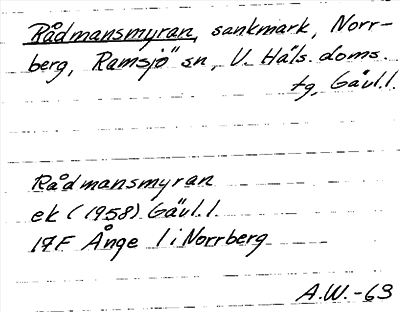 Rådmansmyran, sankmark, Norr-
berg, Ramsjö sn, V. Häls. doms.
tg, Gävl.l.
Rådmansmyran
ek (1958) Gävl.l.
17F Ånge 1 i Norrberg
A.W.-63